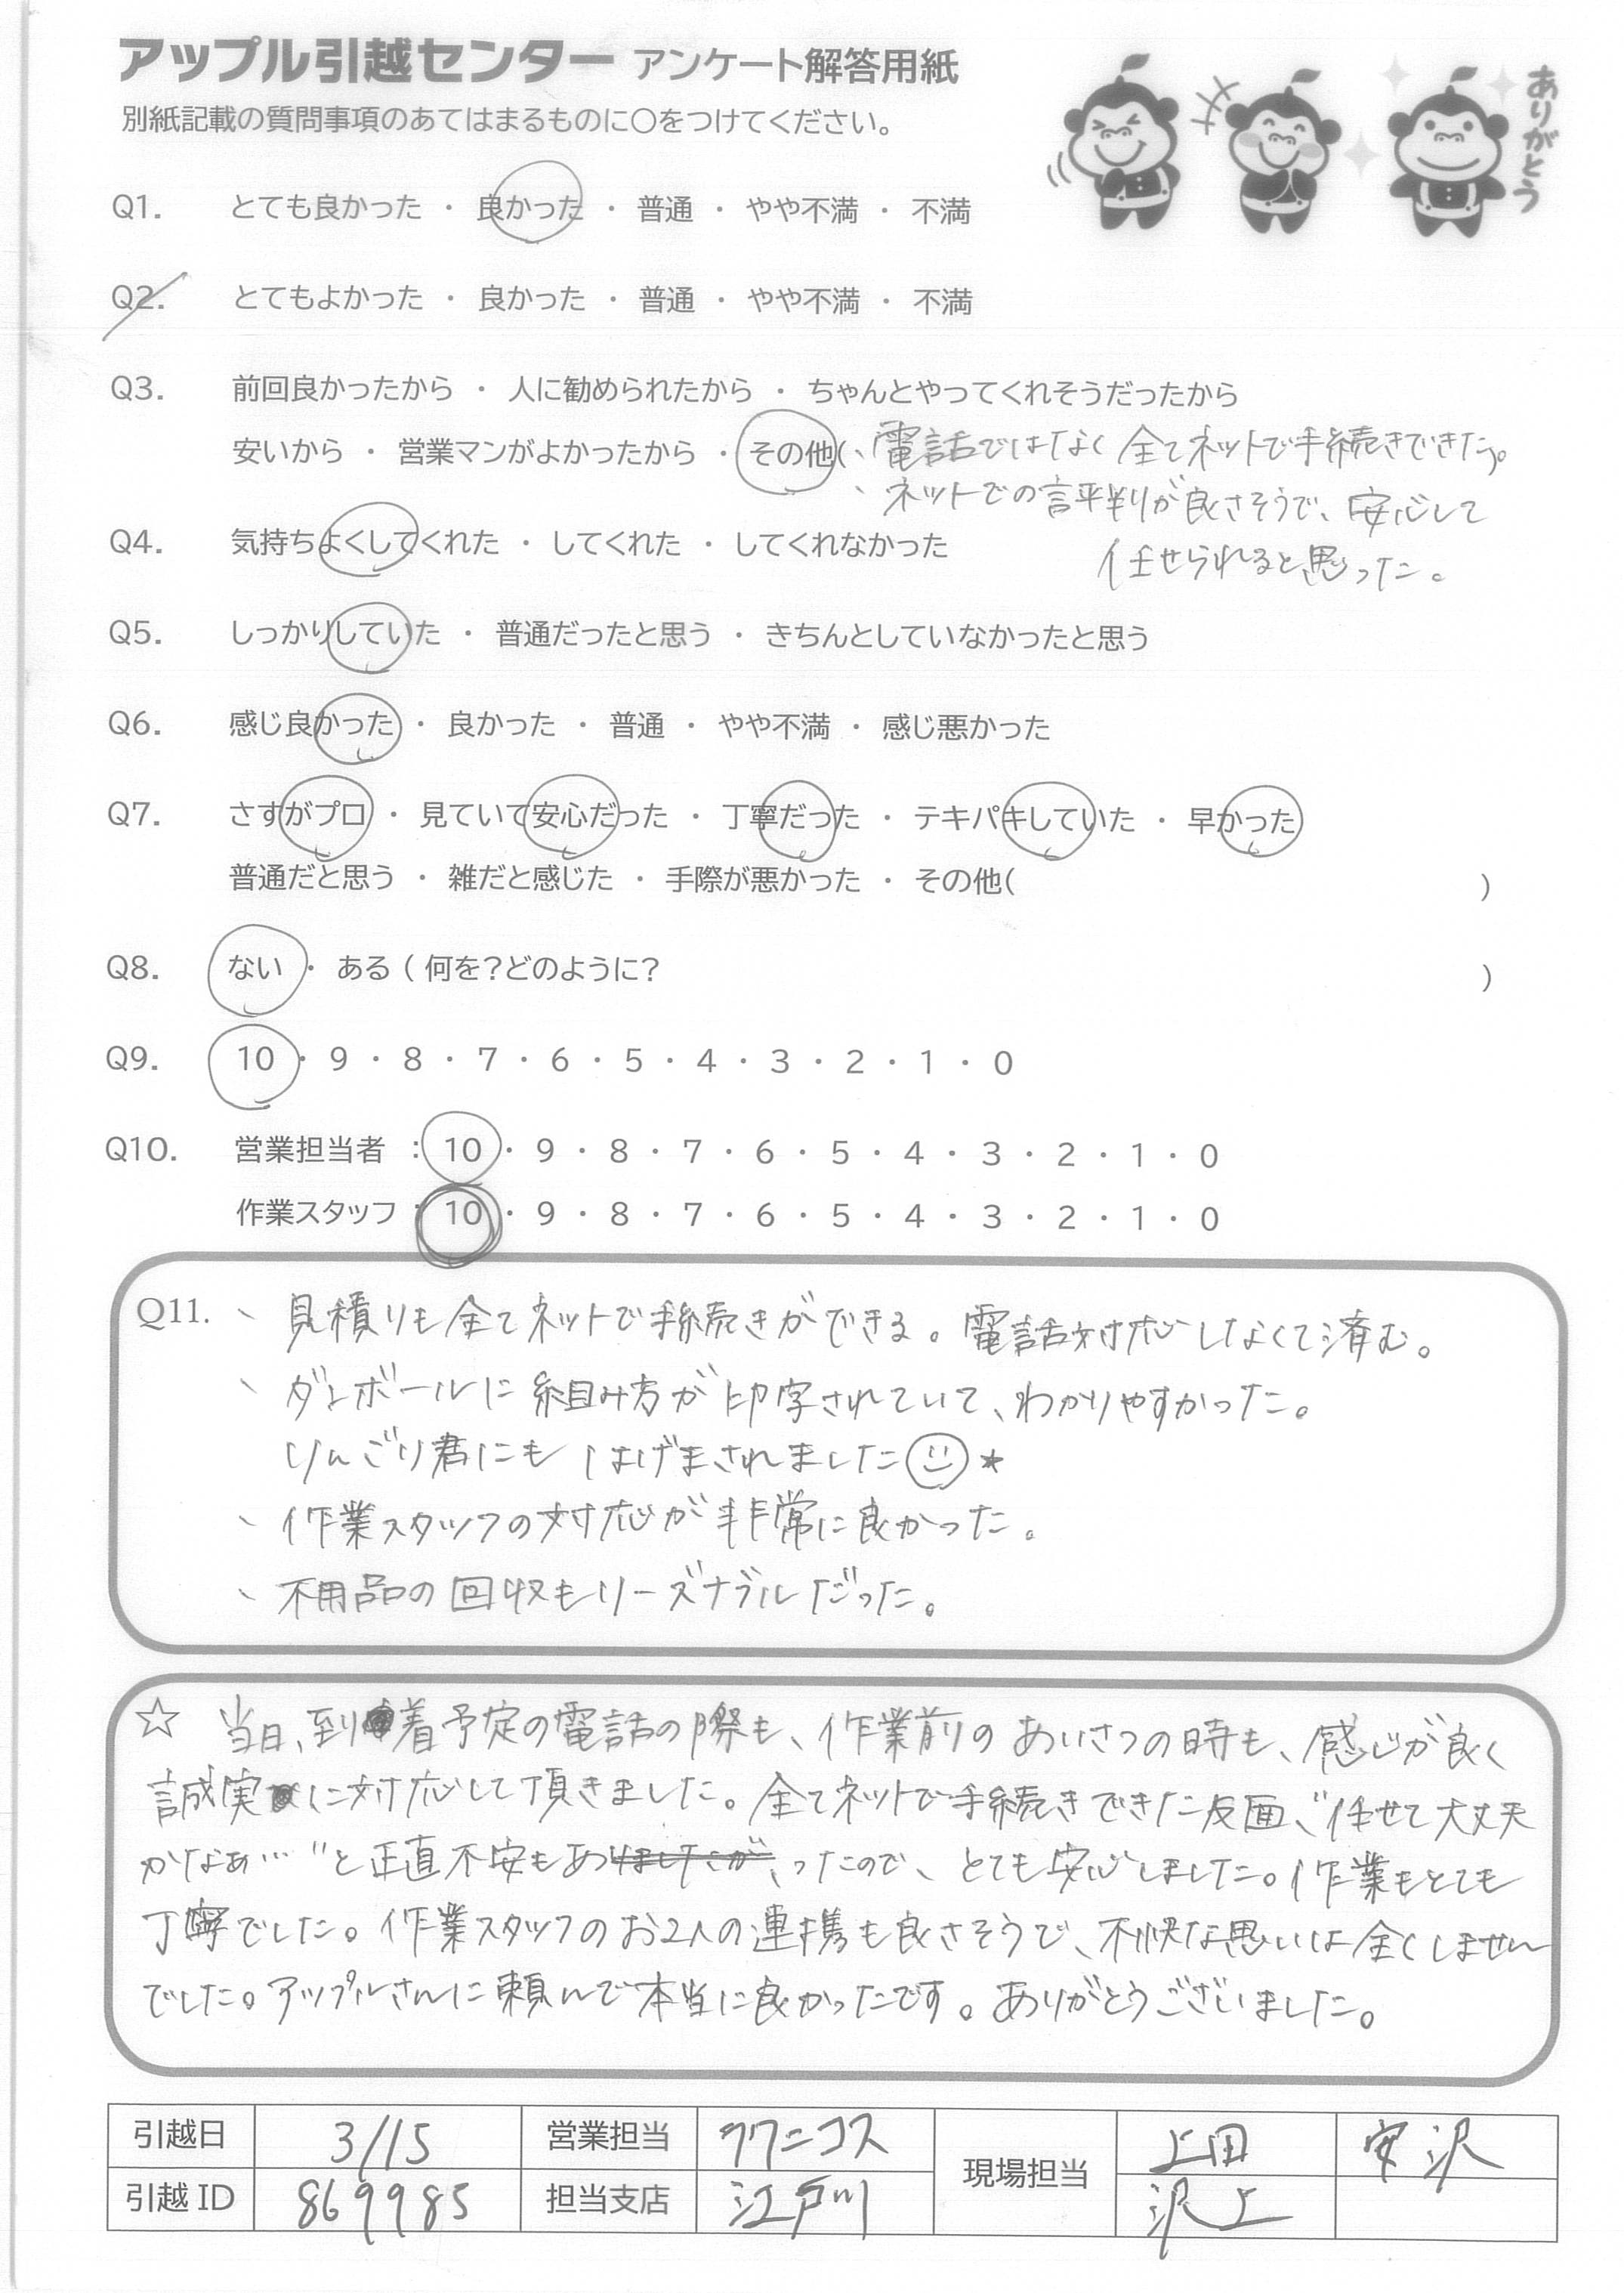 アップル引越センター アンケート解答用紙
ありがとう
別紙記載の質問事項のあてはまるものに〇をつけてください。
Q1. とても良かった ・ 良かった ・ 普通 ・ やや不満 ・ 不満
Q2. とてもよかった ・ 良かった ・ 普通 ・ やや不満 ・ 不満
Q3. 前回良かったから ・ 人に勧められたから ・ ちゃんとやってくれそうだったから
安いから ・ 営業マンがよかったから ・ その他(、電話ではなく全てネットで手続きできた。
、ネットでの評判が良さそうで、安心して
任せられると思った。
Q4. 気持ちよくしてくれた ・ してくれた ・ してくれなかった
Q5. しっかりしていた ・ 普通だったと思う ・ きちんとしていなかったと思う
Q6. 感じ良かった ・ 良かった ・ 普通 ・ やや不満 ・ 感じ悪かった
Q7. さすがプロ ・ 見ていて安心だった ・ 丁寧だった ・ テキパキしていた ・ 早かった
普通だと思う ・ 雑だと感じた ・ 手際が悪かった ・ その他( )
Q8. ない ・ ある ( 何を?どのように? )
Q9. 10 ・ 9 ・ 8 ・ 7 ・ 6 ・ 5 ・ 4 ・ 3 ・ 2 ・ 1 ・ 0
Q10. 営業担当者 : 10 ・ 9 ・ 8 ・ 7 ・ 6 ・ 5 ・ 4 ・ 3 ・ 2 ・ 1 ・ 0
作業スタッフ : 10 ・ 9 ・ 8 ・ 7 ・ 6 ・ 5 ・ 4 ・ 3 ・ 2 ・ 1 ・ 0
Q11. 、見積りも全てネットで手続きができる。電話対応しなくて済む。
、ダンボールに組み方が印字されていて、わかりやすかった。
りんごり君にもはげまされました☺★
、作業スタッフの対応が非常に良かった。
、不用品の回収もリーズナブルだった。
☆ 当日、到着予定の電話の際も、作業前のあいさつの時も、感じが良く
誠実に対応して頂きました。全てネットで手続きできた反面、"任せて大丈夫
かなぁ…"と正直不安もあったので、とても安心しました。作業もとても
丁寧でした。作業スタッフのお2人の連携も良さそうで、不快な思いは全くしません
でした。アップルさんに頼んで本当に良かったです。ありがとうございました。
引越日 3/15 営業担当 ラクニコス 現場担当 上田 安沢
引越ID 869985 担当支店 江戸川 沢上